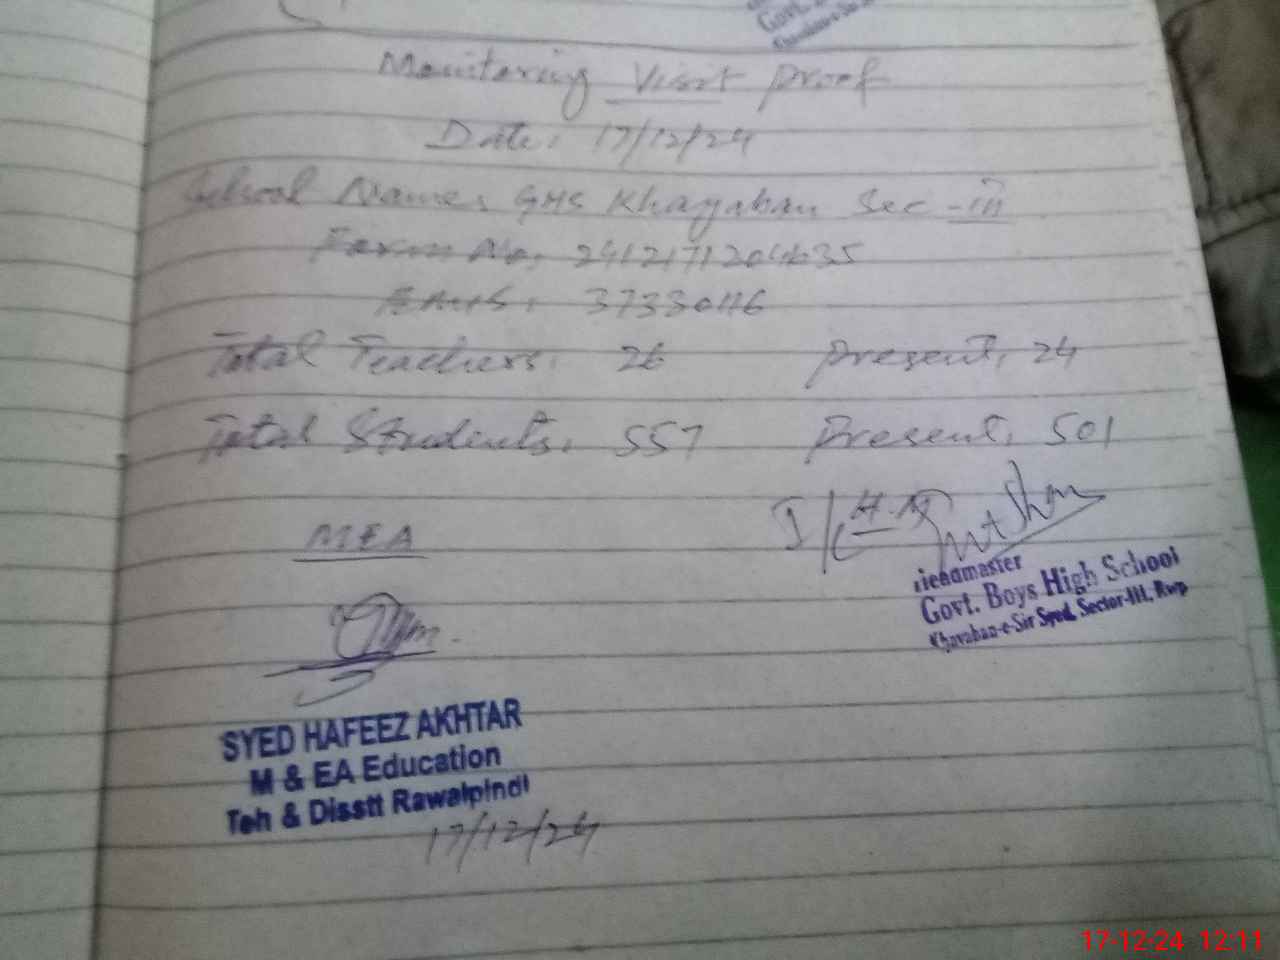 Govt.
Monitoring Visit Proof
Date: 17/12/24
School Name: GHS Khayaban Sec-III
Form No: 2412171204635
EMIS: 37330116
Total Teachers: 26 Present: 24
Total Students: 557 Present: 501
MEA
I/C H.M
Headmaster
Govt. Boys High School
Khayaban-e-Sir Syed, Sector-III, Rwp
SYED HAFEEZ AKHTAR
M & EA Education
Teh & Disstt Rawalpindi
17/12/24
17-12-24 12:11